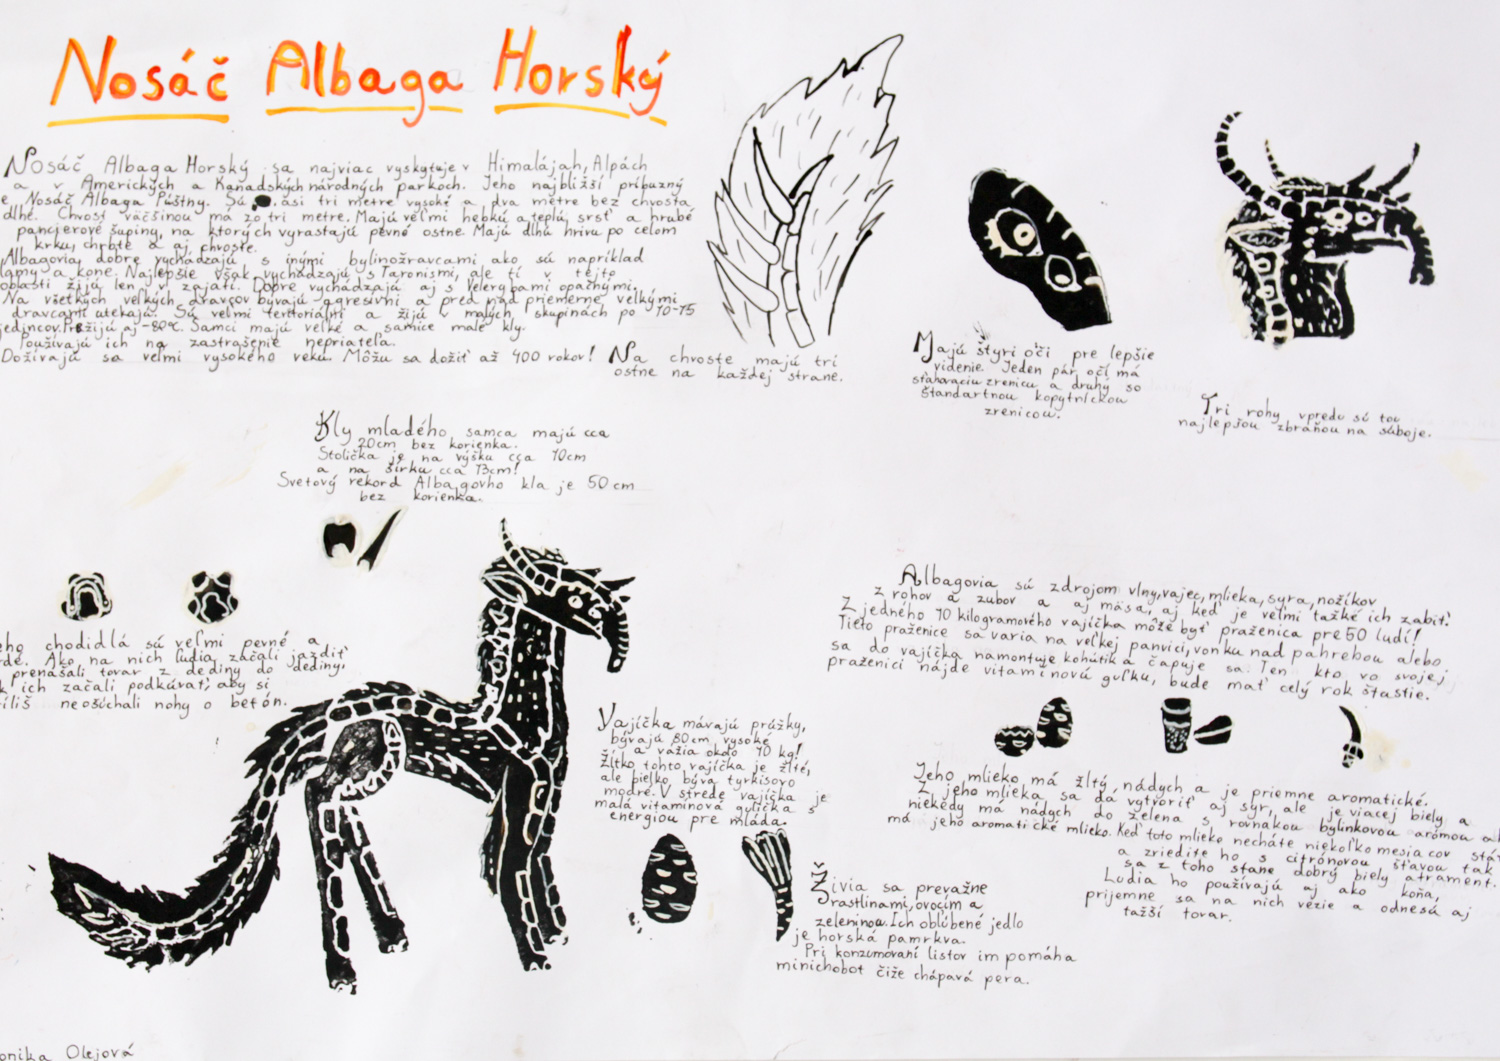 Nosáč Albaga Horský
Nosáč Albaga Horský sa najviac vyskytuje v Himalájah, Alpách
a v Amerických a Kanadských národných parkoch. Jeho najbližší príbuzný
e Nosáč Albaga Púštny. Sú asi tri metre vysoké a dva metre bez chvosta
dlhé. Chvost väčšinou má zo tri metre. Majú veľmi hebkú a teplú srsť a hrubé
pancierové šupiny, na ktorých vyrastajú pevné ostne. Majú dlhú hrivu po celom
krku, chrbte a aj chvoste.
Albagovia dobre vychádzajú s inými bylinožravcami ako sú napríklad
lamy a kone. Najlepšie však vychádzajú s Taronismi, ale tí v tejto
oblasti žijú len v zajatí. Dobre vychádzajú aj s Velerybami opačnými.
Na všetkých veľkých dravcov bývajú agresívni a pred nad priemerne veľkými
dravcami utekajú. Sú veľmi teritoriálni a žijú v malých skupinách po 10-15
jedincov. Prežijú aj -80°C. Samci majú veľké a samice malé kly.
Používajú ich na zastrašenie nepriateľa.
Dožívajú sa veľmi vysokého veku. Môžu sa dožiť až 400 rokov!
Na chvoste majú tri
ostne na každej strane.
Majú štyri oči pre lepšie
videnie. Jeden pár očí má
sťahovaciu zrenicu a druhý so
štandartnou kopytníckou
zrenicou.
Tri rohy vpredu sú tou
najlepšou zbraňou na súboje.
Kly mladého samca majú cca
20cm bez korienka.
Stolička je na výšku cca 10cm
a na šírku cca 13cm!
Svetový rekord Albagovho kla je 50cm
bez korienka.
eho chodidlá sú veľmi pevné a
rdé. Ako na nich ľudia začali jazdiť
prenášali tovar z dediny do dediny,
k ich začali podkúvať, aby si
íliš neošúchali nohy o betón.
Vajíčka mávajú prúžky,
bývajú 80cm vysoké
a važia okolo 10 kg!
Žĺtko tohto vajíčka je žlté,
ale bielko býva tyrkisovo
modré. V strede vajíčka je
malá vitamínová gulička s
energiou pre mláďa.
Živia sa prevažne
rastlinami, ovocím a
zeleninou. Ich obľúbené jedlo
je horská pamrkva.
Pri konzumovaní listov im pomáha
minichobot čiže chápavá pera.
Albagovia sú zdrojom vlny, vajec, mlieka, syra, nožíkov
z rohov a zubov a aj mäsa, aj keď je veľmi ťažké ich zabiť.
Z jedného 10 kilogramového vajíčka môže byť praženica pre 50 ludí!
Tieto praženice sa varia na veľkej panvici, vonku nad pahrebou alebo
sa do vajíčka namontuje kohútik a čapuje sa. Ten kto vo svojej
praženici nájde vitamínovú guľku, bude mať celý rok šťastie.
Jeho mlieko má žltý nádych a je priemne aromatické.
Z jeho mlieka sa dá vytvoriť aj syr, ale je viacej biely a
niekedy má nádych do zelena s rovnakou bylinkovou arómou a
má jeho aromatické mlieko. Keď toto mlieko necháte niekoľko mesiacov stá
a zriedite ho s citrónovou šťavou tak
sa z toho stane dobrý biely atrament.
Ludia ho používajú aj ako koňa,
príjemne sa na nich vezie a odnesú aj
ťažší tovar.
onika Olejová